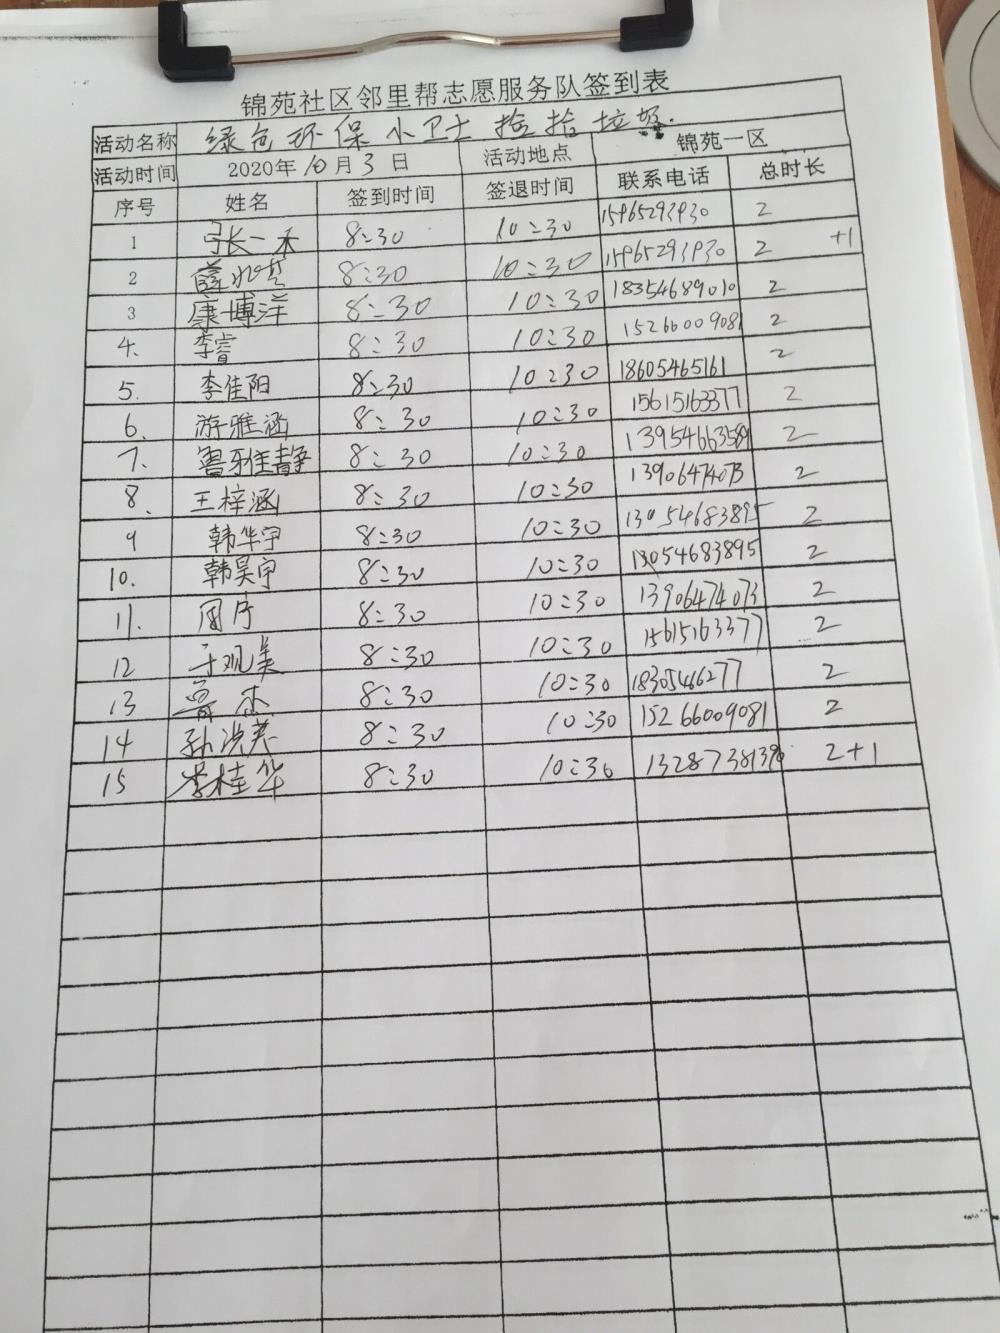 锦苑社区邻里帮志愿服务队签到表
活动名称 绿色环保小卫士 捡拾垃圾.
活动时间 2020年10月3日 活动地点 锦苑一区
序号 姓名 签到时间 签退时间 联系电话 总时长
1 张一禾 8:30 10:30 15965293930 2 +1
2 薛 8:30 10:30 15965293930 2
3 康博洋 8:30 10:30 18354689010 2
4. 李睿 8:30 10:30 15266009081 2
5. 李佳阳 8:30 10:30 18605465161 2
6. 游雅涵 8:30 10:30 15615163377 2
7. 雅静 8:30 10:30 13954663589 2
8. 王梓涵 8:30 10:30 13906474073 2
9 韩华宇 8:30 10:30 13054683895 2
10. 韩昊宇 8:30 10:30 13054683895 2
11. 8:30 10:30 13906474073 2
12 于观美 8:30 10:30 15615163377 2
13 鲁杰 8:30 10:30 18305466277 2
14 孙洪英 8:30 10:30 15266009081 2
15 李桂华 8:30 10:30 13287381390 2+1